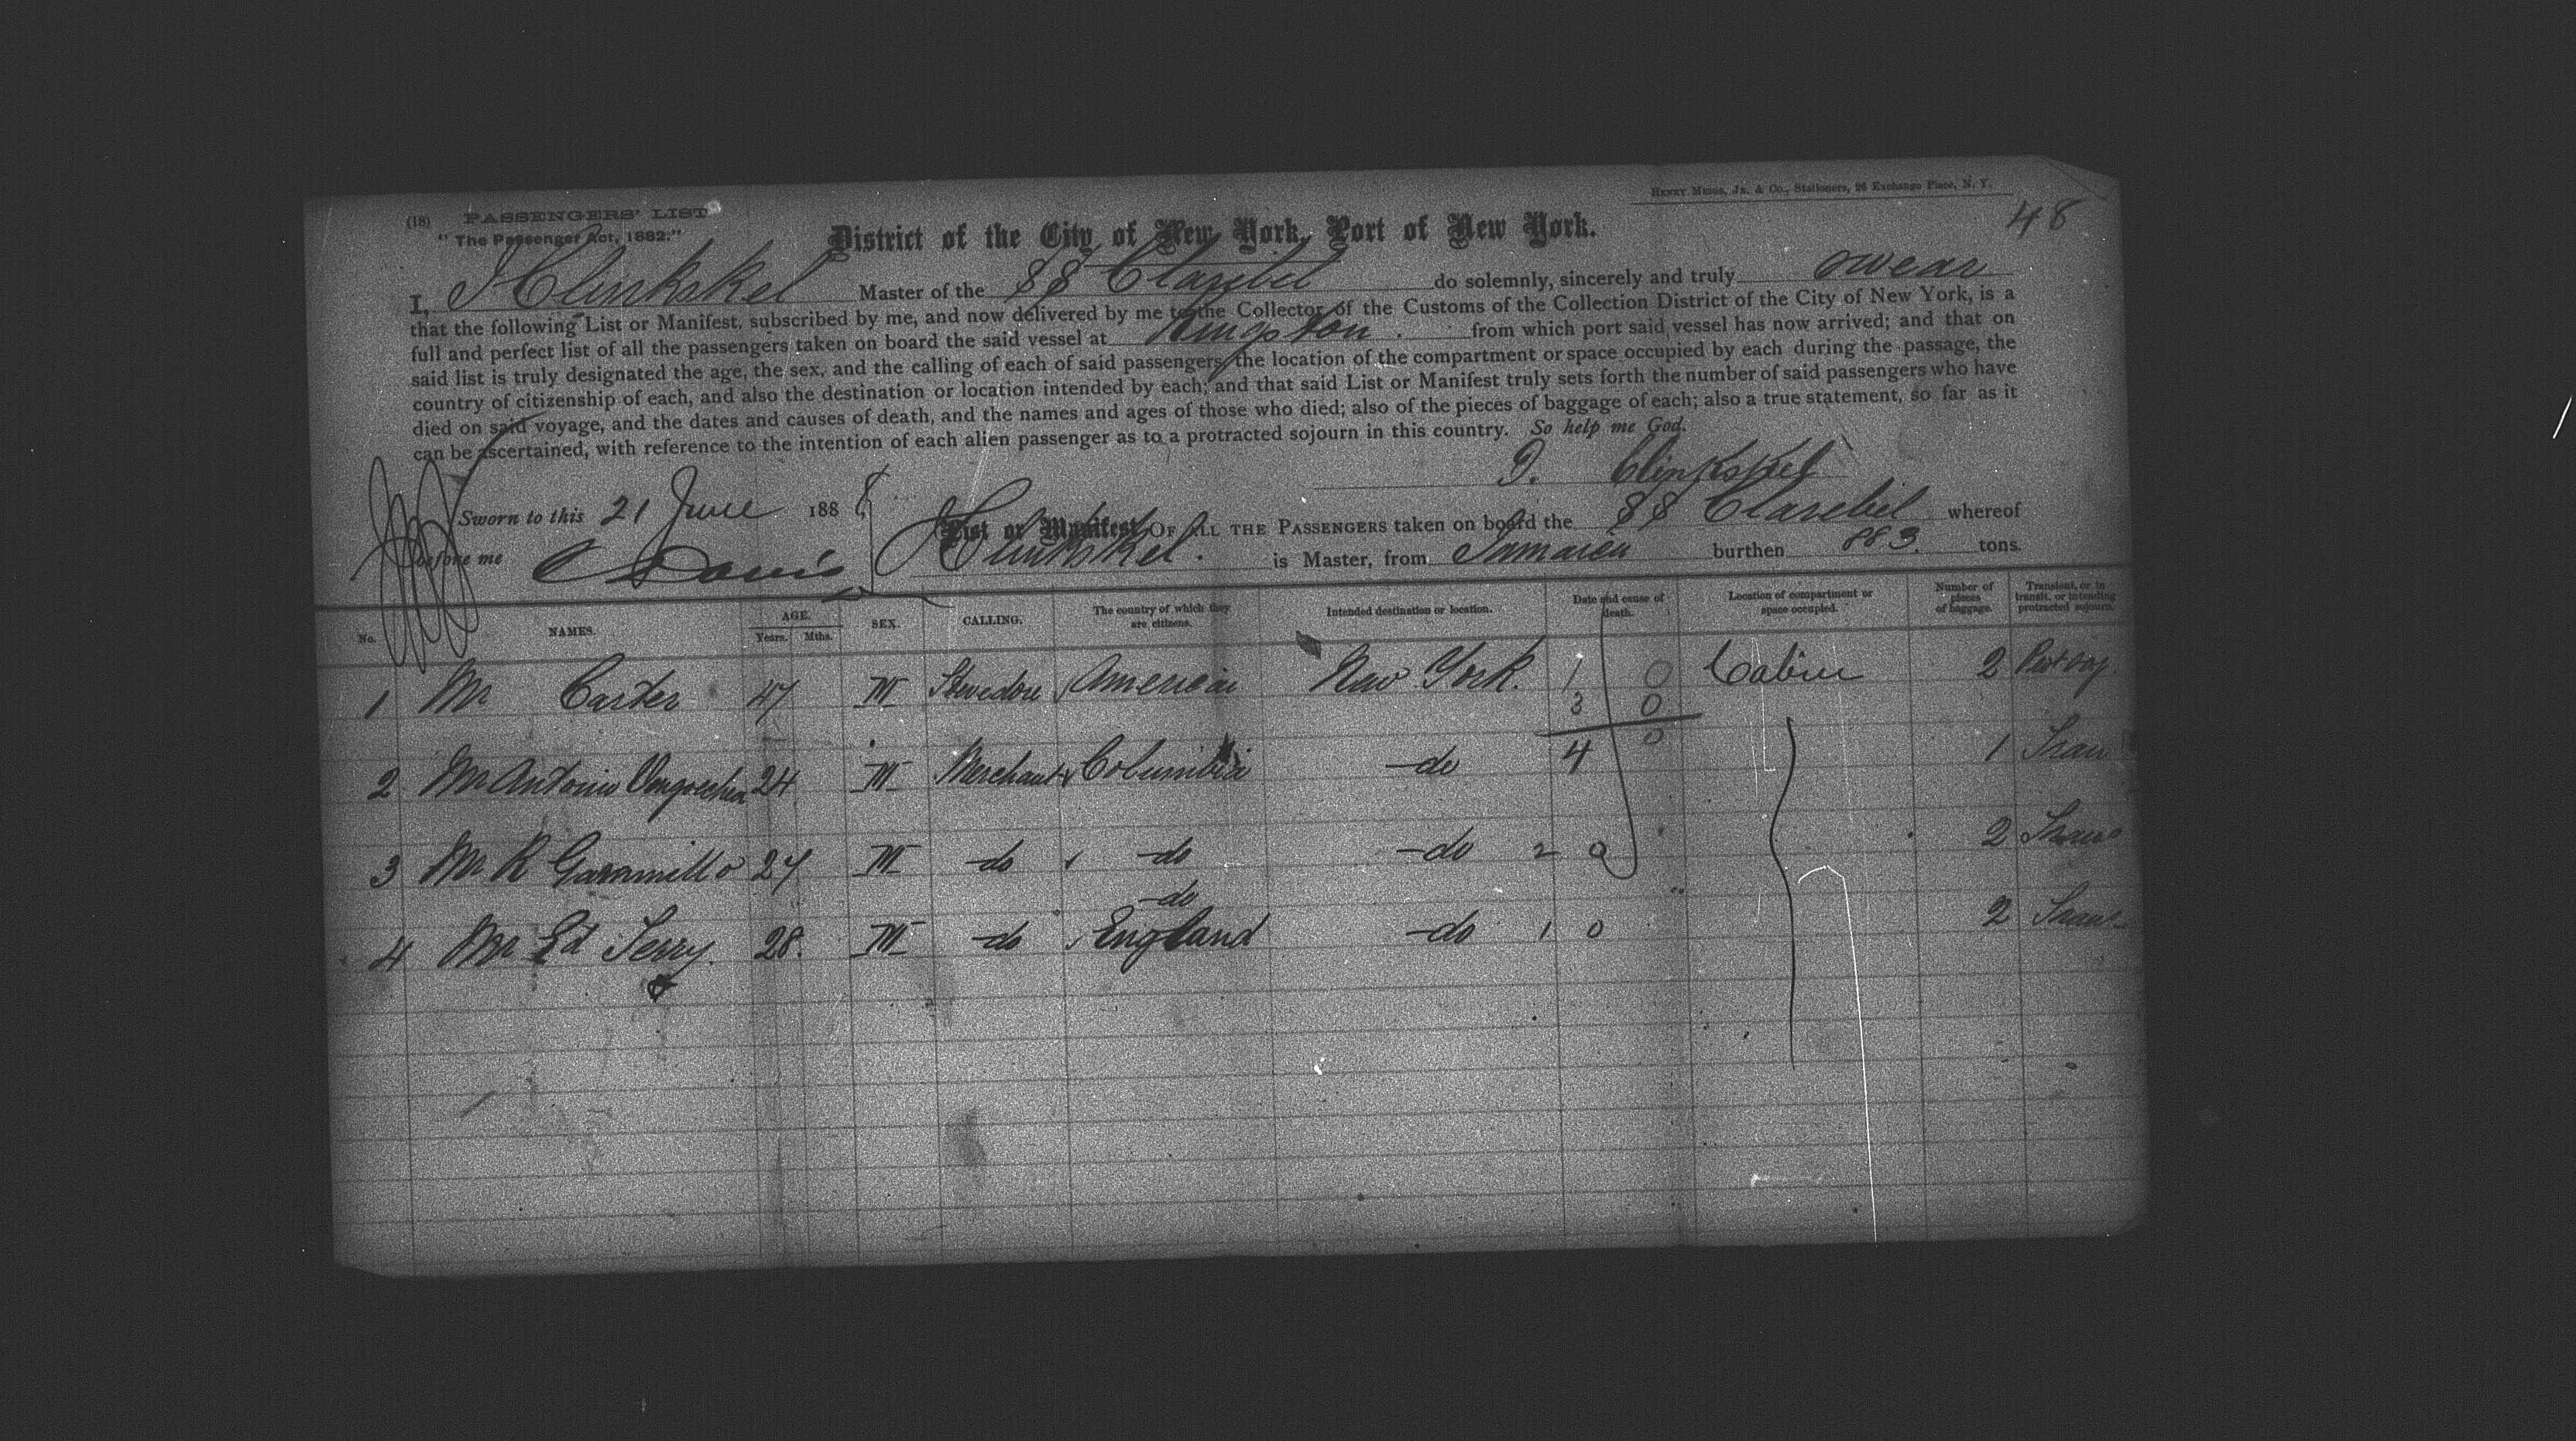 HENRY MEIGS, JR. & CO., Stationers, 26 Exchange Place, N. Y.
48
(18) PASSENGERS' LIST
"The Passenger Act, 1882."
District of the City of New York, Port of New York.
I, J Clinkskel Master of the SS Claribel do solemnly, sincerely and truly swear
that the following List or Manifest, subscribed by me, and now delivered by me to the Collector of the Customs of the Collection District of the City of New York, is a
full and perfect list of all the passengers taken on board the said vessel at Kingston from which port said vessel has now arrived; and that on
said list is truly designated the age, the sex, and the calling of each of said passengers, the location of the compartment or space occupied by each during the passage, the
country of citizenship of each, and also the destination or location intended by each; and that said List or Manifest truly sets forth the number of said passengers who have
died on said voyage, and the dates and causes of death, and the names and ages of those who died; also of the pieces of baggage of each; also a true statement, so far as it
can be ascertained, with reference to the intention of each alien passenger as to a protracted sojourn in this country. So help me God.
J. Clinkskel
Sworn to this 21 June 1888
List or Manifest OF ALL THE PASSENGERS taken on board the SS Claribel whereof
before me Davis
J Clinkskel. is Master, from Jamaica burthen 883. tons.
No. NAMES. AGE. Years. Mths. SEX. CALLING. The country of which they are citizens. Intended destination or location. Date and cause of death. Location of compartment or space occupied. Number of pieces of baggage. Transient, or in transit, or intending protracted sojourn.
1 Mr Carter 47 M Stevedore American New York. 1 0 Cabin 2
3 0
2 Mr Antonio 24 M Merchant Columbia -do 4 0 1 Tran
3 Mr R Garamillo 27 M -do -do -do 2 0 2 Trans
-do
4 Mr Ed Terry. 28. M -do England -do 1 0 2 Trans